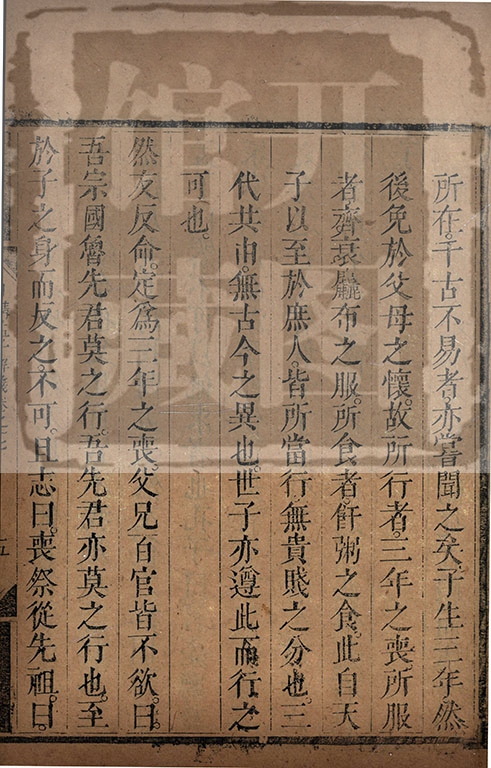 所在。千古不易者。亦嘗聞之矣。子生三年。然
後免於父母之懷。故所行者。三年之喪。所服
者。齊衰麤布之服。所食者。飦粥之食。此自天
子以至於庶人。皆所當行。無貴賤之分也。三
代共由。無古今之異也。世子亦遵此而行之
可也。
然友反命。定爲三年之喪。父兄百官皆不欲。曰。
吾宗國魯先君莫之行。吾先君亦莫之行也。至
於子之身而反之。不可。且志曰。喪祭從先祖。曰。
五